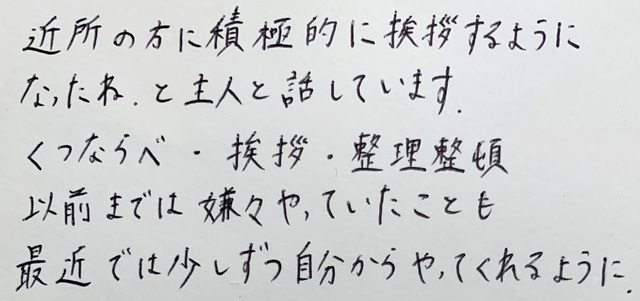 近所の方に積極的に挨拶するように
なったね.と主人と話しています.
くつならべ・挨拶・整理整頓
以前までは嫌々やっていたことも
最近では少しずつ自分からやってくれるように.